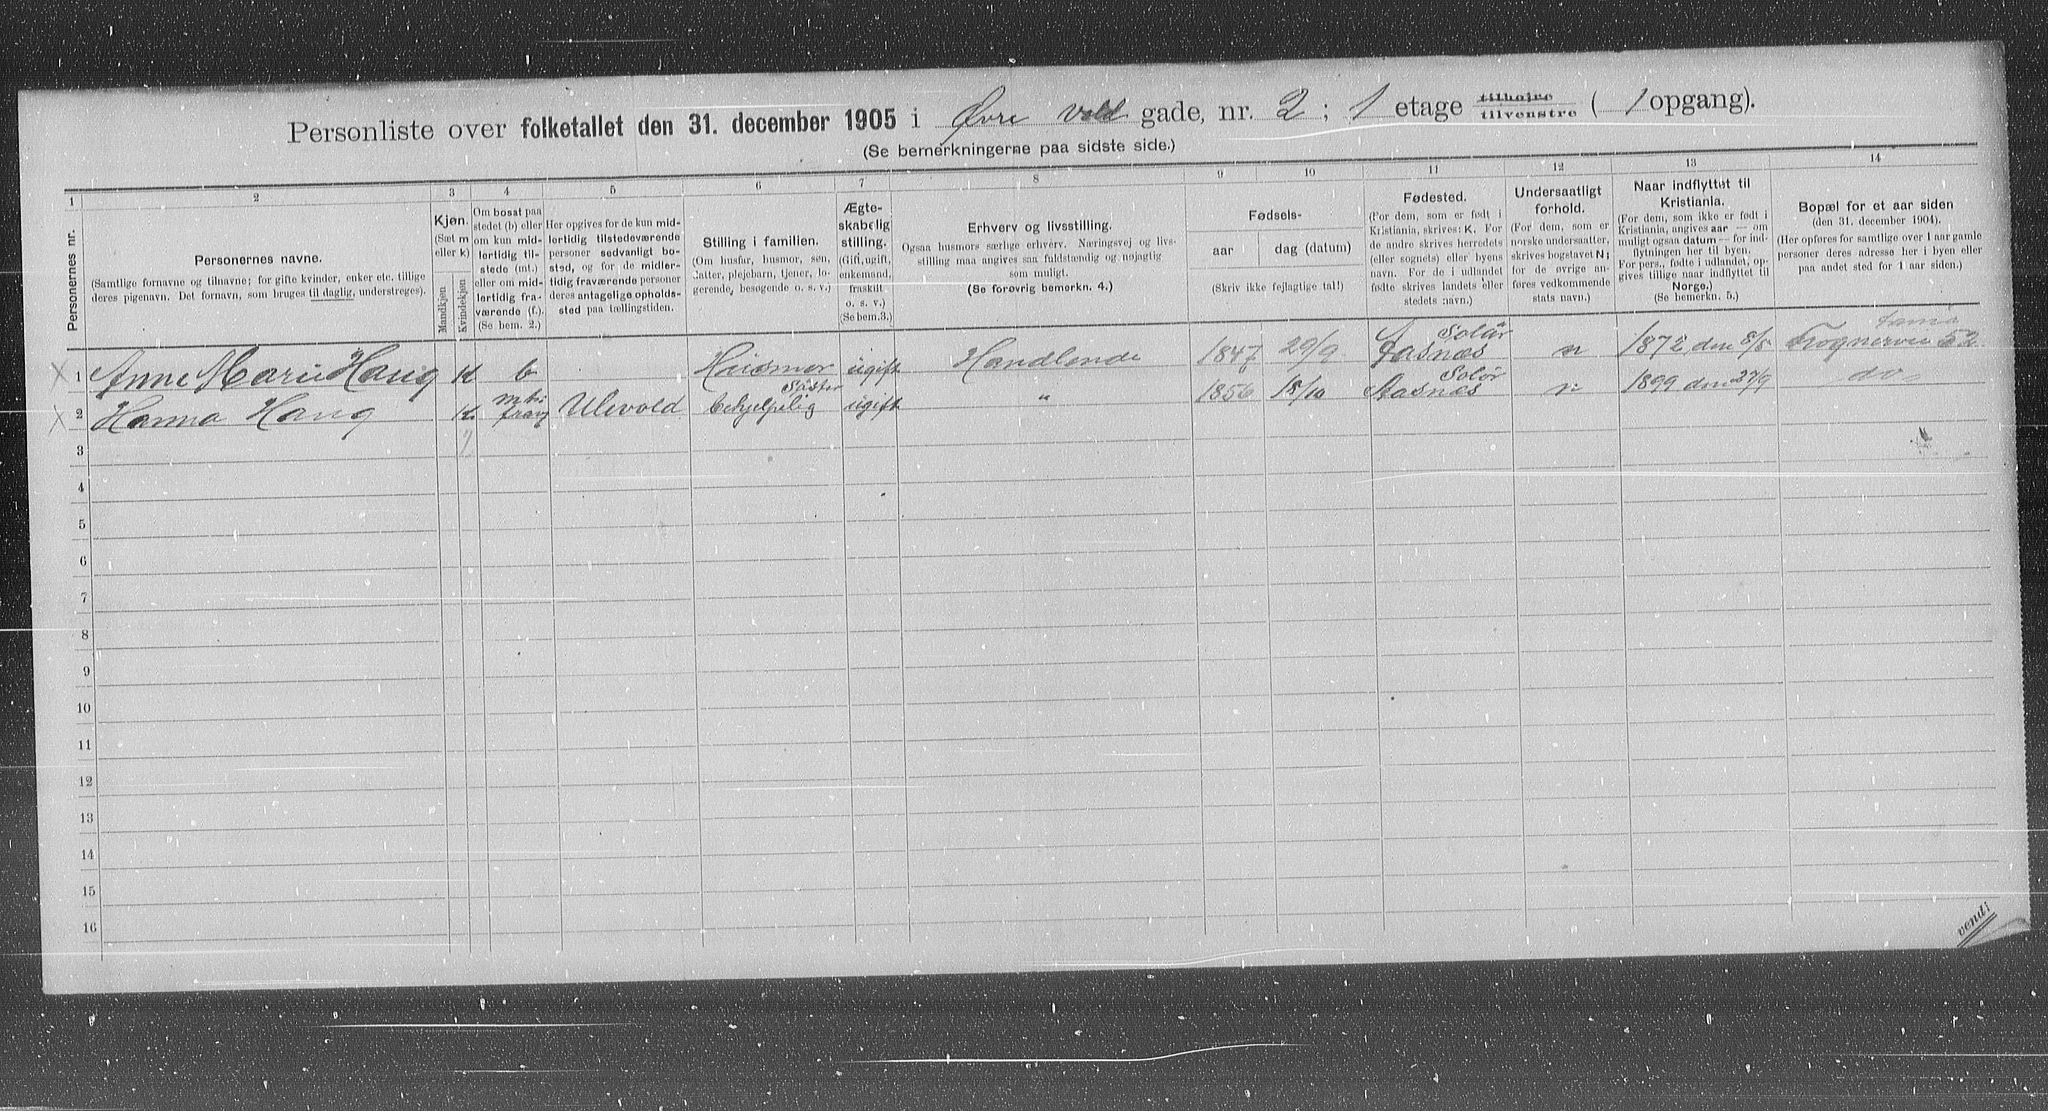 Personliste over folketallet den 31. december 1905 i Øvre Vold gade, nr. 2; 1 etage tilhøire tilvenstre (1 opgang).
(Se bemerkningerne paa sidste side.)
1 2 3 4 5 6 7 8 9 10 11 12 13 14
Personernes nr.
Personernes navne.
(Samtlige fornavne og tilnavne; for gifte kvinder, enker etc. tillige
deres pigenavn. Det fornavn, som bruges til daglig, understreges).
Kjøn.
(Sæt m
eller k)
Mandkjøn
Kvindekjøn
Om bosat paa
stedet (b) eller
om kun mid-
lertidig tils-
tede (mt.)
eller om mid-
lertidig fra-
værende (f.).
(Se bem. 2.)
Her opgives for de kun mid-
lertidig tilstedeværende
personer sedvanligt bo-
sted, og for de midler-
tidig fraværende personer
deres antagelige opholds-
sted paa tællingstiden.
Stilling i familien.
(Om husfar, husmor, søn,
datter, plejebarn, tjener, lo-
gerende, besøgende o. s. v.)
Ægte-
skabelig
stilling.
(Gift, ugift,
enkemand,
fraskilt
o. s. v.)
(Se bem.3.)
Erhverv og livsstilling.
Ogsaa husmors særlige erhverv. Næringsvej og livs-
stilling maa angives saa fuldstændig og nøjagtig
som muligt.
(Se forøvrig bemerkn. 4.)
Fødsels-
aar
dag (datum)
(Skriv ikke fejlagtige tal!)
Fødested.
(For dem, som er født i
Kristiania, skrives: K. For
de andre skrives herredets
(eller sognets) eller byens
navn. For de i udlandet
fødte skrives landets eller
stedets navn.)
Undersaatligt
forhold.
(For dem, som er
norske undersaatter,
skrives bogstavet N;
for de øvrige an-
føres vedkommende
stats navn.)
Naar indflyttet til
Kristiania.
(For dem, som ikke er født i
Kristiania, angives aar — om
muligt ogsaa datum — for ind-
flytningen her til byen.
For pers., fødte i udlandet, op-
gives tillige naar indflyttet til
Norge.)
(Se bemerkn. 5.)
Bopæl for et aar siden
(den 31. december 1904).
(Her opføres for samtlige over 1 aar gamle
personer deres adresse her i byen eller
paa andet sted for 1 aar siden.)
X 1 Anne Marie Haug k b Husmor ugift Handlende 1847 29/9 Aasnæs Solør n 1872 den 8/5 Frognervei 52
X 2 Hanna Haug k Ulevold Søster behjelpelig ugift " 1856 18/10 Aasnæs Solør n 1899 den 27/9 do
2
3
4
5
6
7
8
9
10
11
12
13
14
15
16
vend!